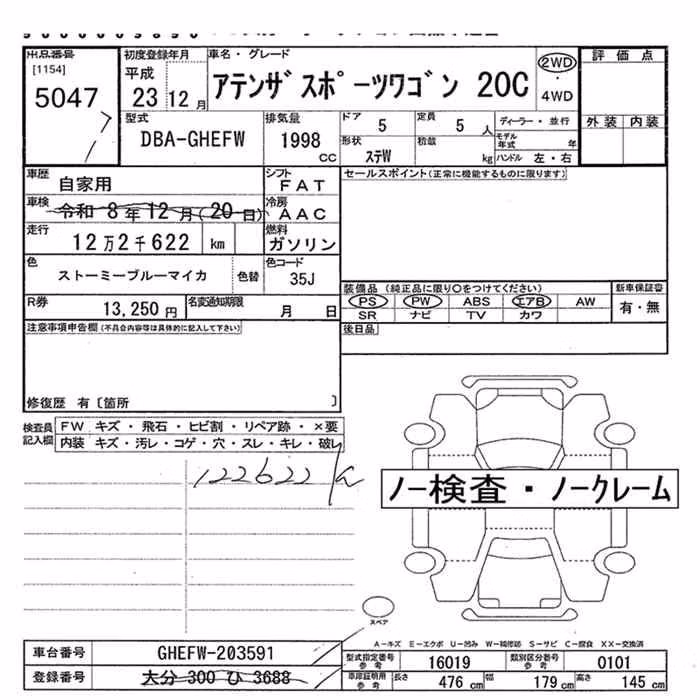 出品番号 初度登録年月 車名・グレード 評価点
[1154] 平成 アテンザスポーツワゴン 20C 2WD
5047 23 12月 4WD
型式 排気量 ドア 定員 ディーラー・並行 外装 内装
DBA-GHEFW 1998 cc 5 5人 モデル年式 年
形状 積載
ステW kg ハンドル 左・右
車歴 自家用 シフト FAT セールスポイント(正常に機能するものに限ります)
車検 令和 8年 12月(20日) 冷房 AAC
走行 12万2千622 km 燃料 ガソリン
色 ストーミーブルーマイカ 色替 色コード 35J
装備品(純正品に限り○をつけてください) 新車保証書
R券 13,250円 名変通知期限 月 日 PS PW ABS エアB AW 有・無
SR ナビ TV カワ
注意事項申告欄(不具合内容等は具体的に記入して下さい) 後日品
修復歴 有〔箇所 〕
検査員記入欄 FW キズ・飛石・ヒビ割・リペア跡・×要
内装 キズ・汚レ・コゲ・穴・スレ・キレ・破レ
122622 K
ノー検査・ノークレーム
スペア
A-キズ E-エクボ U-凹み W-補修跡 S-サビ C-腐食 XX-交換済
車台番号 GHEFW-203591 型式指定番号 参考 16019 類別区分番号 参考 0101
登録番号 大分 300 ひ 3688 車庫証明用 参考 長さ 476 cm 幅 179 cm 高さ 145 cm